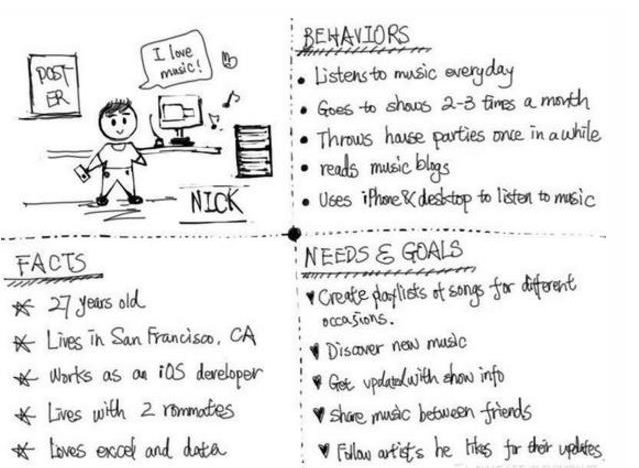 POST
ER
I love
music!
NICK
BEHAVIORS
Listens to music everyday
Goes to shows 2-3 times a month
Throws house parties once in a while
reads music blogs
Uses iPhone & desktop to listen to music
FACTS
27 years old
Lives in San Francisco, CA
Works as an iOS developer
Lives with 2 rommates
Loves excel and data
NEEDS & GOALS
Create playlists of songs for different
occasions.
Discover new music
Get updated with show info
share music between friends
Follow artists he likes for their updates